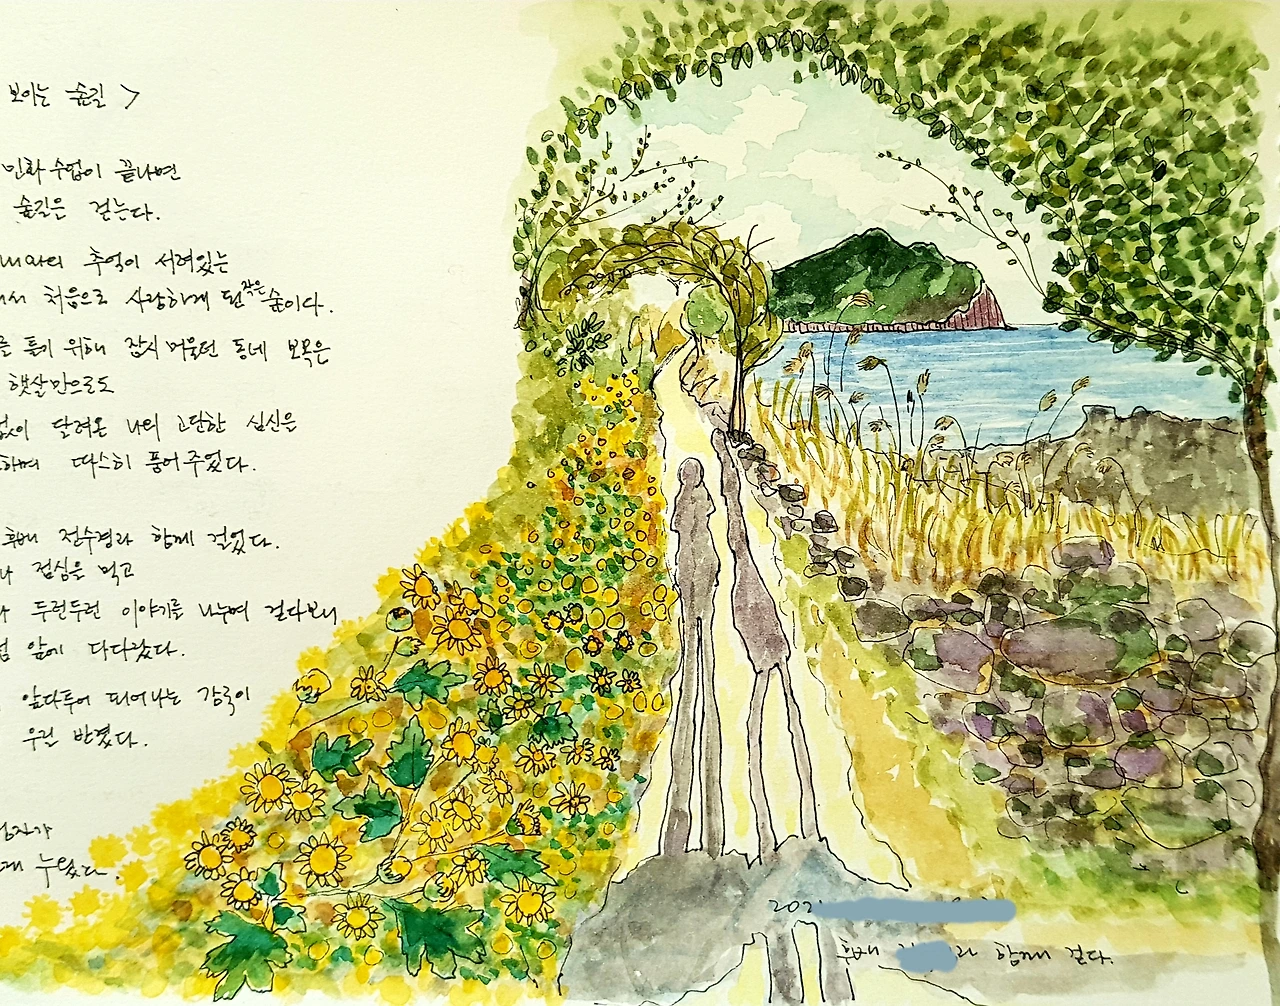 보이는 숲길 >
민화수업이 끝나면
숲길은 걷는다.
추억이 서려있는
처음으로 사랑하게 된 작은 숲이다.
틀기 위해 잠시 머물던 동네 보목은
햇살만으로도
없이 달려온 나의 고단한 심신을
하며 따스히 품어주었다.
후배 전수경과 함께 걸었다.
점심을 먹고
두런두런 이야기를 나누며 걷다보니
섬 앞에 다다랐다.
앞다투어 피어나는 감국이
우릴 반겼다.
누웠다.
202
후배 라 함께 걷다.